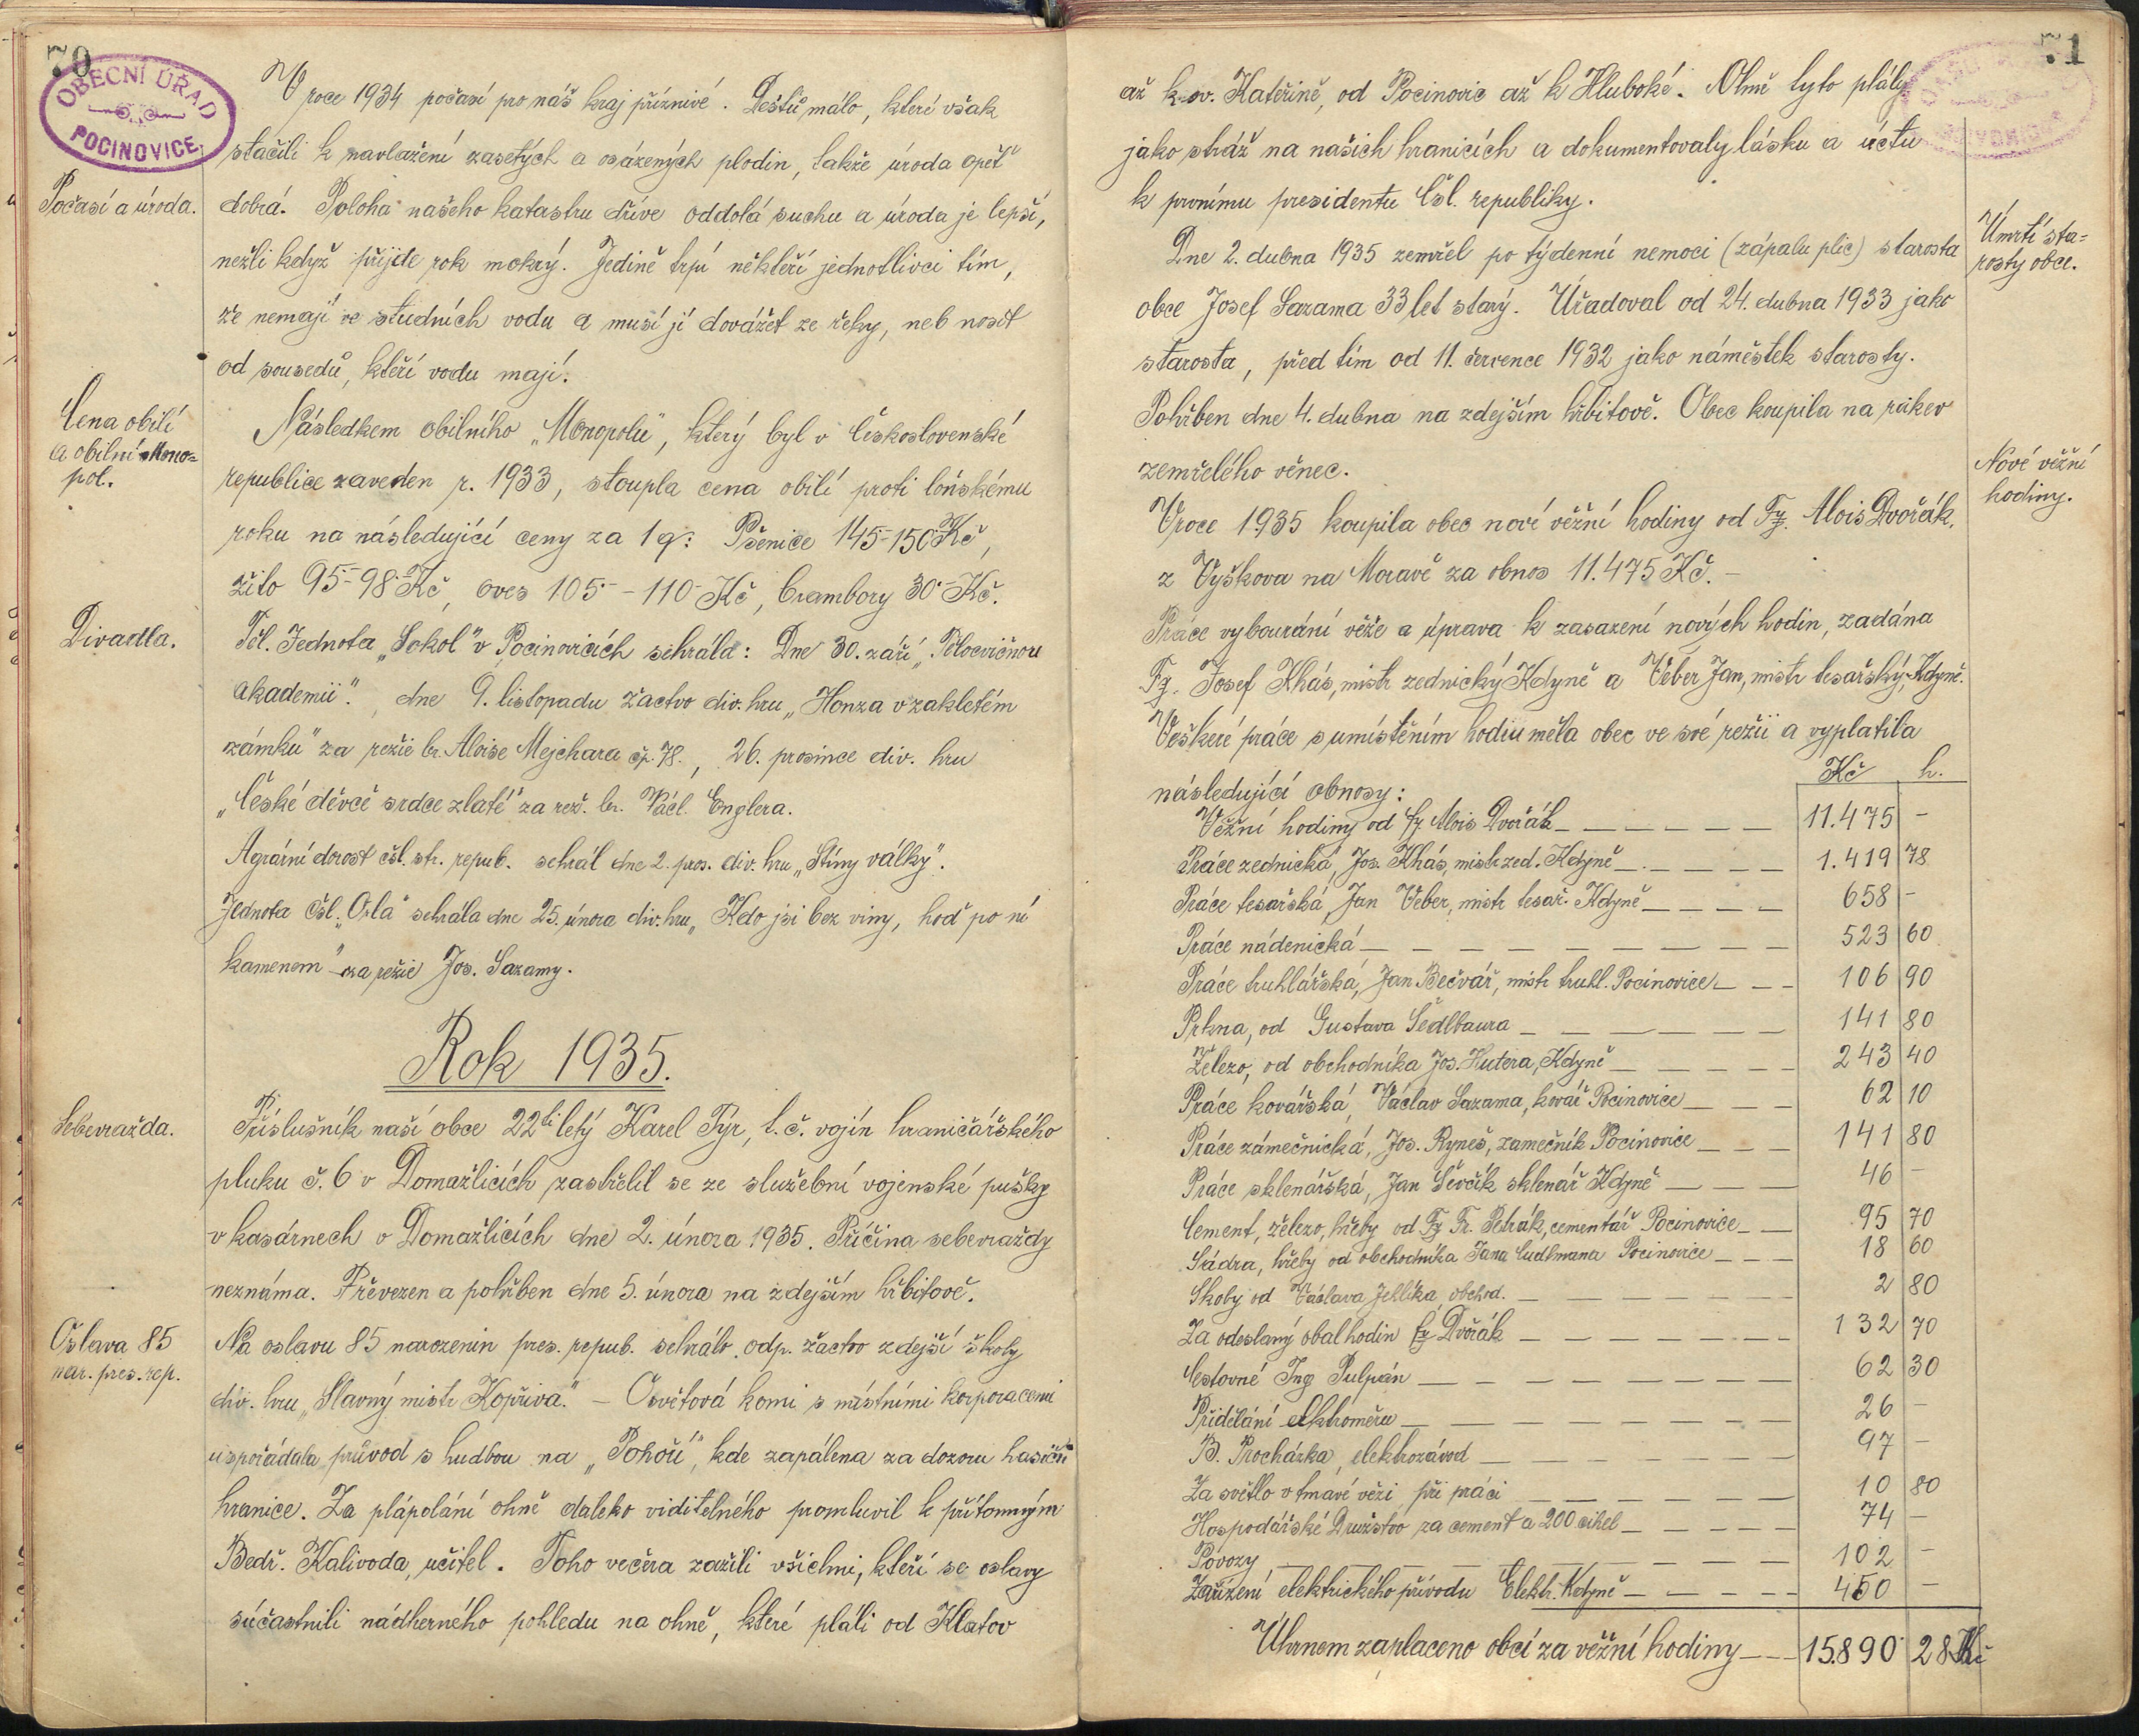 70
OBECNÍ ÚŘAD
POCINOVICE
V roce 1934 počasí pro náš kraj příznivé. Dešťů málo, které však
stačili k navlažení zasetých a osázených plodin, takže úroda opět
Počasí a úroda.
dobrá. Poloha našeho katastru dříve oddolá suchu a úroda je lepší,
nežli když přijde rok mokrý. Jedině trpí někteří jednotlivci tím,
že nemají ve studních vodu a musí jí dovážet ze řeky, neb nosit
od sousedů, kteří vodu mají.
Cena obilí
a obilní Mono=
pol.
Následkem obilního „Monopolu", který byl v Československé
republice zaveden r. 1933, stoupla cena obilí proti loňskému
roku na následující ceny za 1 q: Pšenice 145-150 Kč,
žito 95-98 Kč, oves 105·- -110- Kč, brambory 30·- Kč.
Divadla.
Těl. Jednota „Sokol" v Pocinovicích sehrála: Dne 30. září „Tělocvičnou
akademii"., dne 9. listopadu žactvo div. hru „Honza v zakletém
zámku" za režie br. Aloise Mejchara čp. 78., 26. prosince div. hru
„České děvče srdce zlaté" za rež. br. Václ. Englera.
Agrární dorost čsl. str. repub. sehrál dne 2. pros. div. hru „Stíny války".
Jednota Čsl. „Orla" sehrála dne 25. února div. hru „Kdo jsi bez viny, hoď po ní
kamenem" za režie Jos. Sazamy.
Rok 1935.
Sebevražda.
Příslušník naší obce 22ti letý Karel Týr, t.č. vojín hraničářského
pluku č. 6 v Domažlicích zastřelil se ze služební vojenské pušky
v kasárnech v Domažlicích dne 2. února 1935. Příčina sebevraždy
neznáma. Převezen a pohřben dne 5. února na zdejším hřbitově.
Oslava 85
nar. pres. rep.
Na oslavu 85 narozenin pres. repub. sehrálo odp. žactvo zdejší školy
div. hru „Slavný mistr Kopřiva." - Osvětová komi s místními korporacemi
uspořádala průvod s hudbou na „Pohoří", kde zapálena za dozoru hasičů
hranice. Za plápolání ohně daleko viditelného promluvil k přítomným
Bedř. Kalivoda, učitel. Toho večera zažili všichni, kteří se oslavy
súčastnili nádherného pohledu na ohně, které pláli od Klatov
71
až k sv. Kateřině, od Pocinovic až k Hluboké. Ohně tyto pláli
jako stráž na našich hranicích a dokumentovaly lásku a úctu
k prvnímu presidentu Čsl. republiky.
Úmrtí sta=
rosty obce.
Dne 2. dubna 1935 zemřel po týdenní nemoci (zápalu plic) starosta
obce Josef Sazama 33 let starý. Úřadoval od 24. dubna 1933 jako
starosta, před tím od 11. července 1932 jako náměstek starosty.
Pohřben dne 4. dubna na zdejším hřbitově. Obec koupila na rakev
zemřelého věnec.
Nové věžní
hodiny.
V roce 1935 koupila obec nové věžní hodiny od Fy. Alois Dvořák,
z Vyškova na Moravě za obnos 11.475 Kč. -
Práce vybourání věže a úprava k zasazení nových hodin, zadána
Fy. Josef Khás, mistr zednický Kdyně a Véber Jan, mistr tesařský, Kdyně.
Veškeré práce s umístěním hodin měla obec ve své režii a vyplatila
následující obnosy: Kč h.
Věžní hodiny od fy. Alois Dvořák 11.475 -
Práce zednická, Jos. Khás, mistr zed. Kdyně 1.419 78
Práce tesařská, Jan Véber, mistr tesař. Kdyně 658 -
Práce nádenická 523 60
Práce truhlářská, Jan Bečvář, mistr truhl. Pocinovice 106 90
Prkna, od Gustava Sedlbaura 141 80
Železo, od obchodníka Jos. Hutera, Kdyně 243 40
Práce kovářská, Václav Sazama, kovář Pocinovice 62 10
Práce zámečnická, Jos. Ryneš, zamečník Pocinovice 141 80
Práce sklenářská, Jan Ševčík sklenář Kdyně 46 -
Cement, železo, hřeby od Fy Fr. Petrák, cementář Pocinovice 95 70
Sádra, hřeby od obchodníka Jana Cudlmana Pocinovice 18 60
Skoby od Václava Jehlíka, obchod. 2 80
Za odeslaný obal hodin fy. Dvořák 132 70
Cestovné Ing Pulpán 62 30
Přidělání elktroměru 26 -
B. Procházka, elektrozávod 97 -
Za světlo v tmavé věži při práci 10 80
Hospodářské Družstvo za cement a 200 cihel 74 -
Povozy 102 -
Zařízení elektrického přívodu Elektr. Kdyně 450 -
Úhrnem zaplaceno obcí za věžní hodiny 15.890 28 Kč